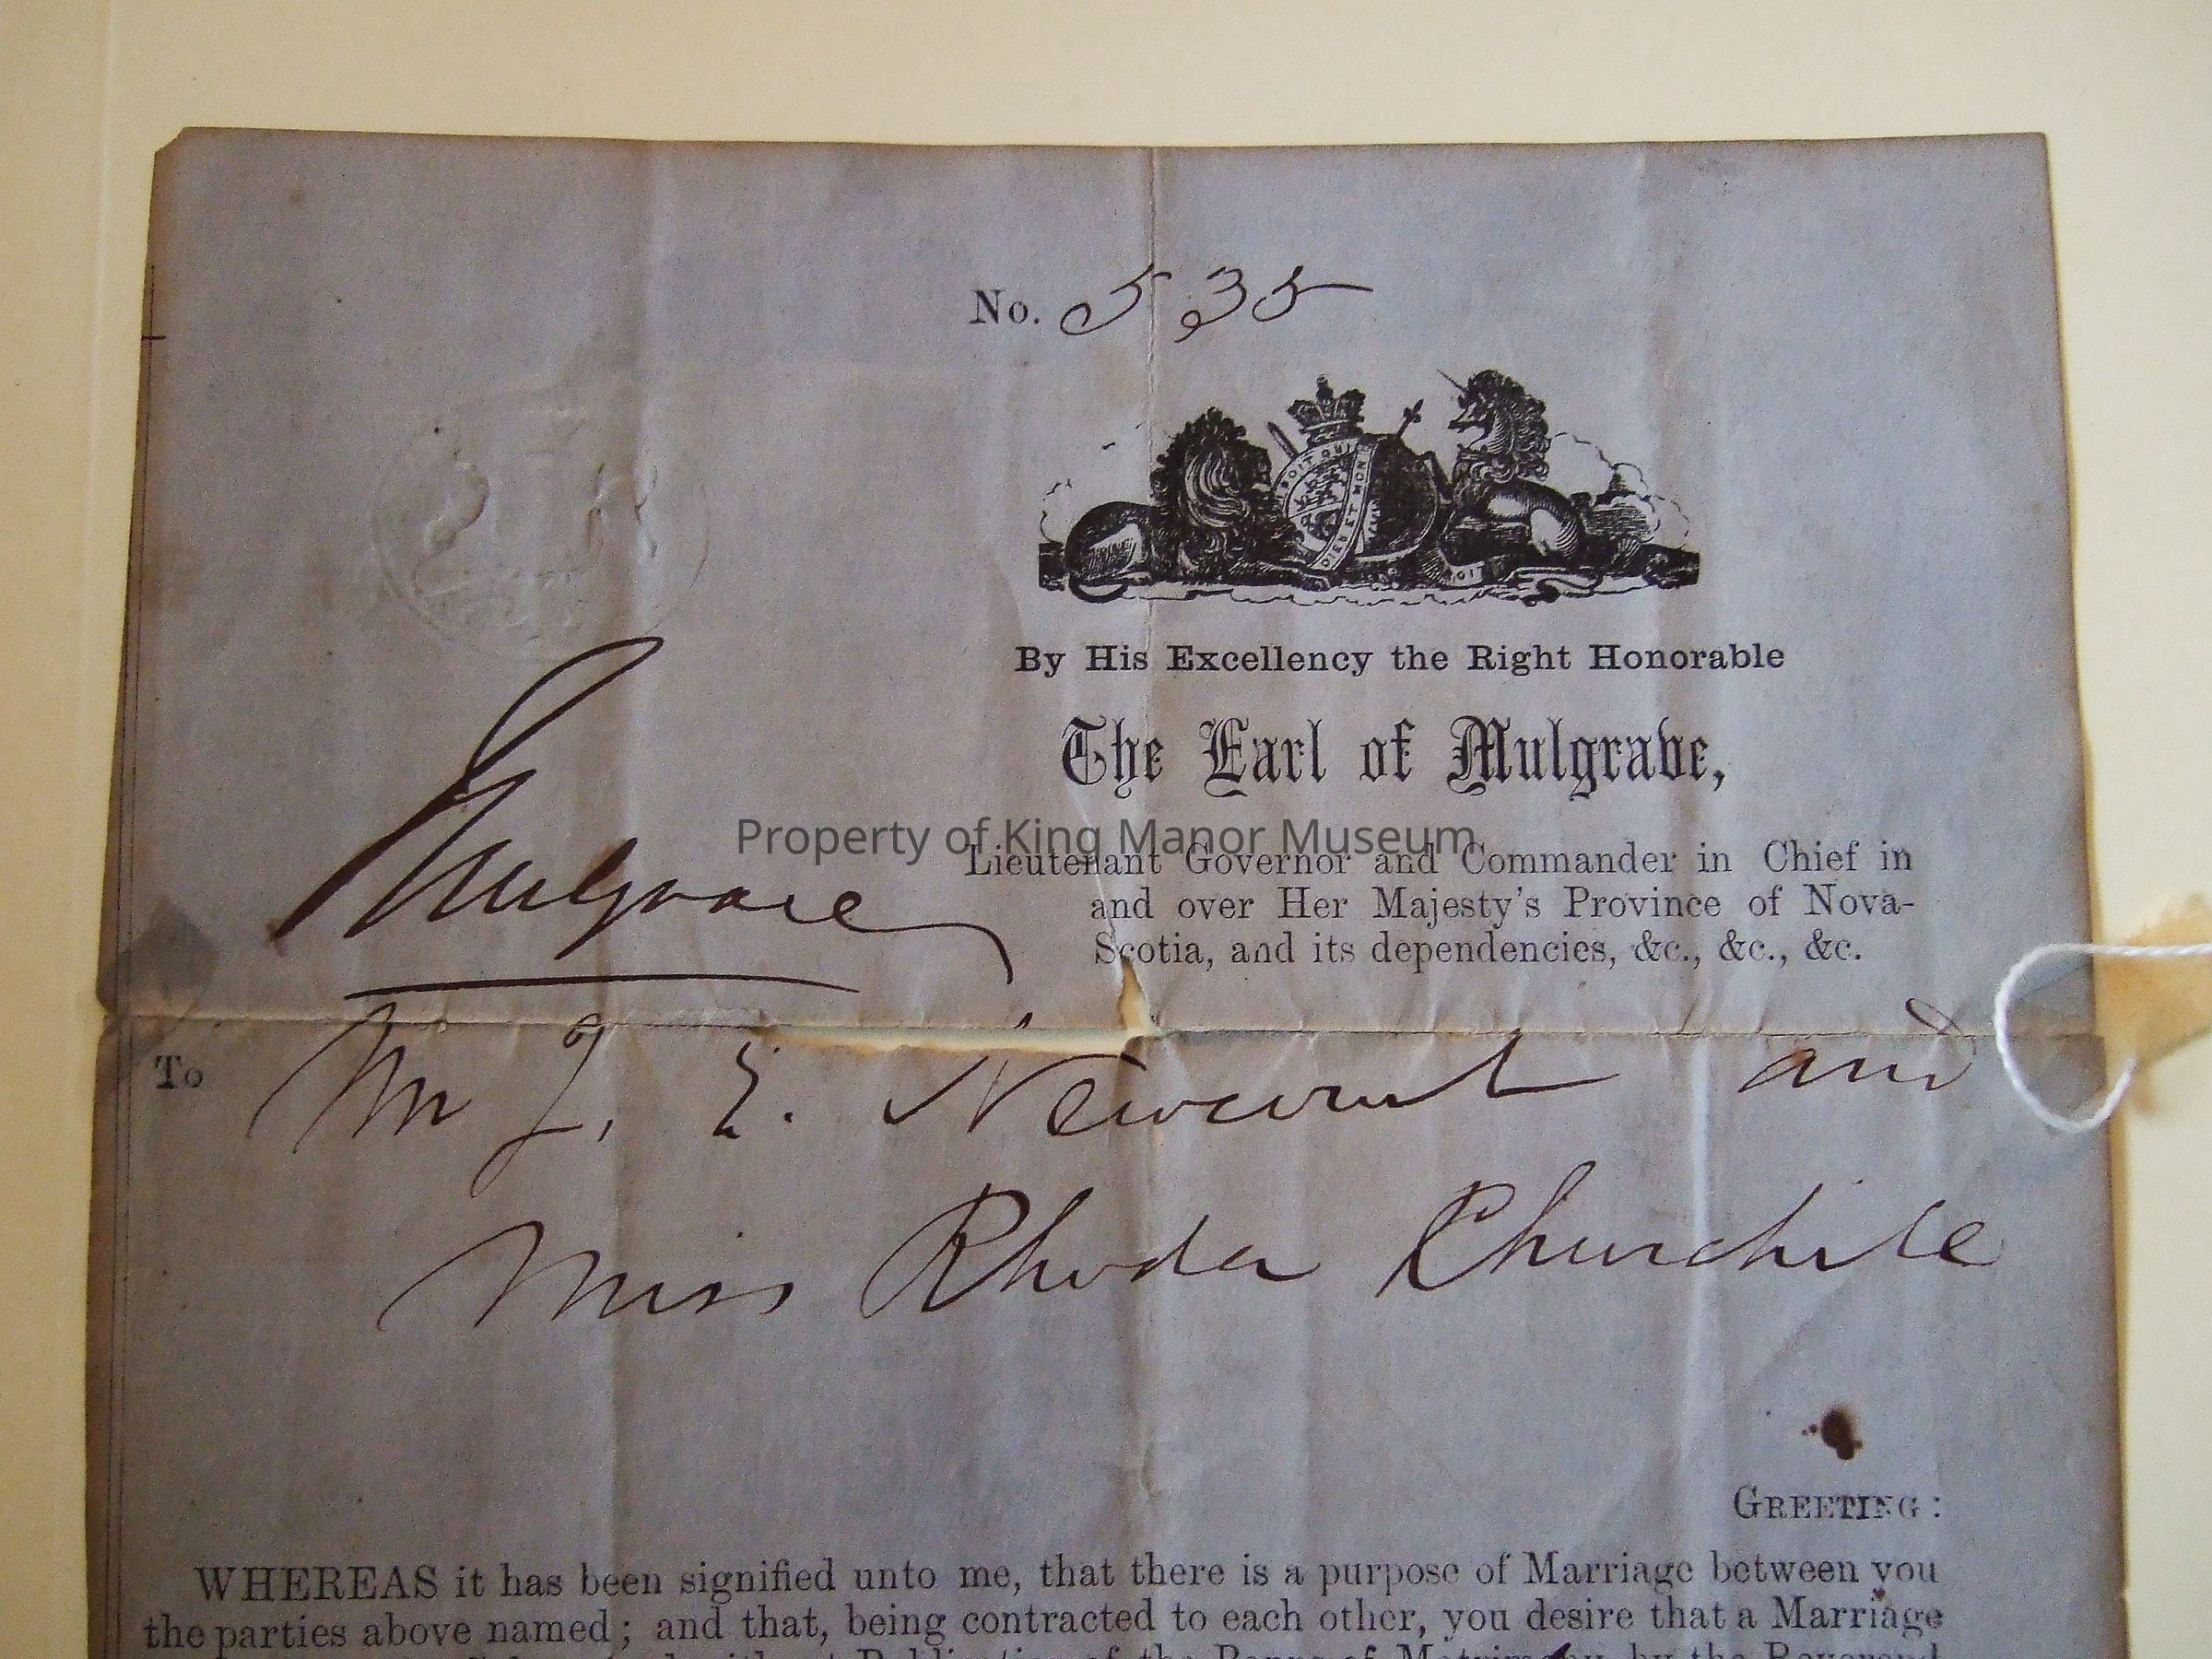 No. 535
DROIT QUI
DIEU ET MON
By His Excellency the Right Honorable
The Earl of Mulgrave,
Property of King Manor Museum
Lieutenant Governor and Commander in Chief in
and over Her Majesty's Province of Nova-
Scotia, and its dependencies, &c., &c., &c.
Mulgrave
To Mr J. E. Newcomb and
Miss Rhoda Churchill
GREETING:
WHEREAS it has been signified unto me, that there is a purpose of Marriage between you
the parties above named; and that, being contracted to each other, you desire that a Marriage
Publication of the Banns of Matrimony, by the Reverend